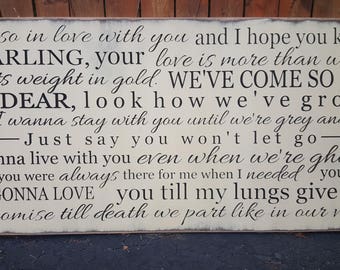 so in love with you and I hope you k
ARLING, your love is more than w
ts weight in gold. WE'VE COME SO
DEAR, look how we've gro
I wanna stay with you until we're grey an
Just say you won't let go
nna live with you even when we're gh
you were always there for me when I needed yo
GONNA LOVE you till my lungs give
omise till death we part like in our